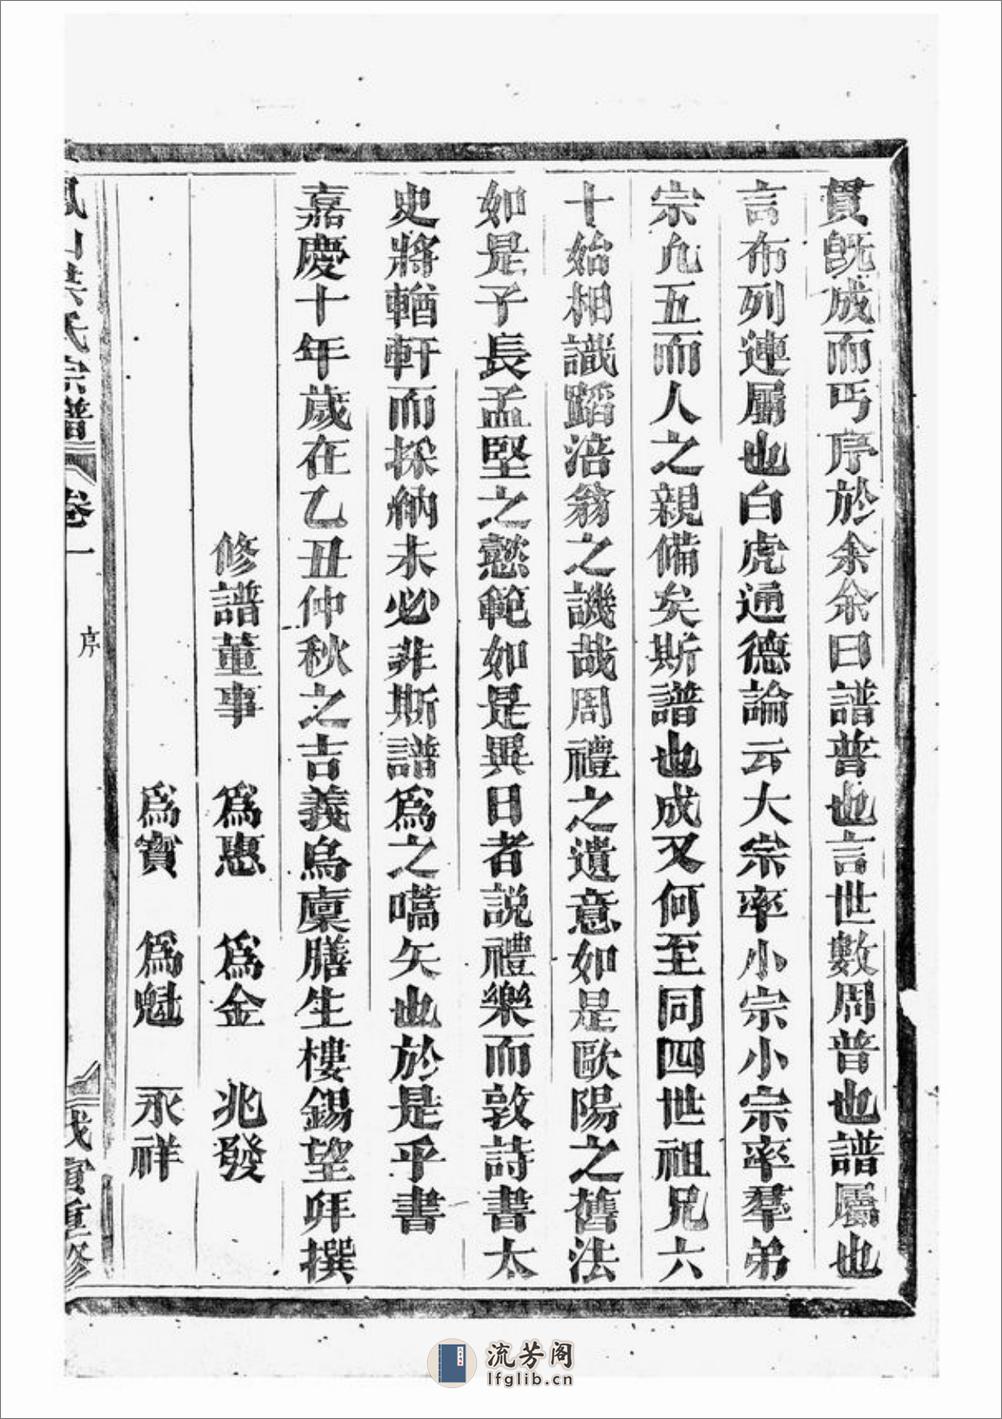 貫既成而丐序於余余曰譜普也言世數周普也譜屬也
言布列連屬也白虎通德論云大宗率小宗小宗率羣弟
宗九五而人之親備矣斯譜也成又何至同四世祖兄六
十始相識蹈涪翁之譏哉周禮之遺意如是歐陽之舊法
如是子長孟堅之懿範如是異日者說禮樂而敦詩書太
史將輶軒而採納未必非斯譜為之嚆矢也於是乎書
嘉慶十年歲在乙丑仲秋之吉義烏廩膳生樓錫望拜撰
修譜董事 為惠 為金 兆發
為寶 為魁 永祥
山洪氏宗譜 卷一 序 戊寅重修
流芳阁
lfglib.cn